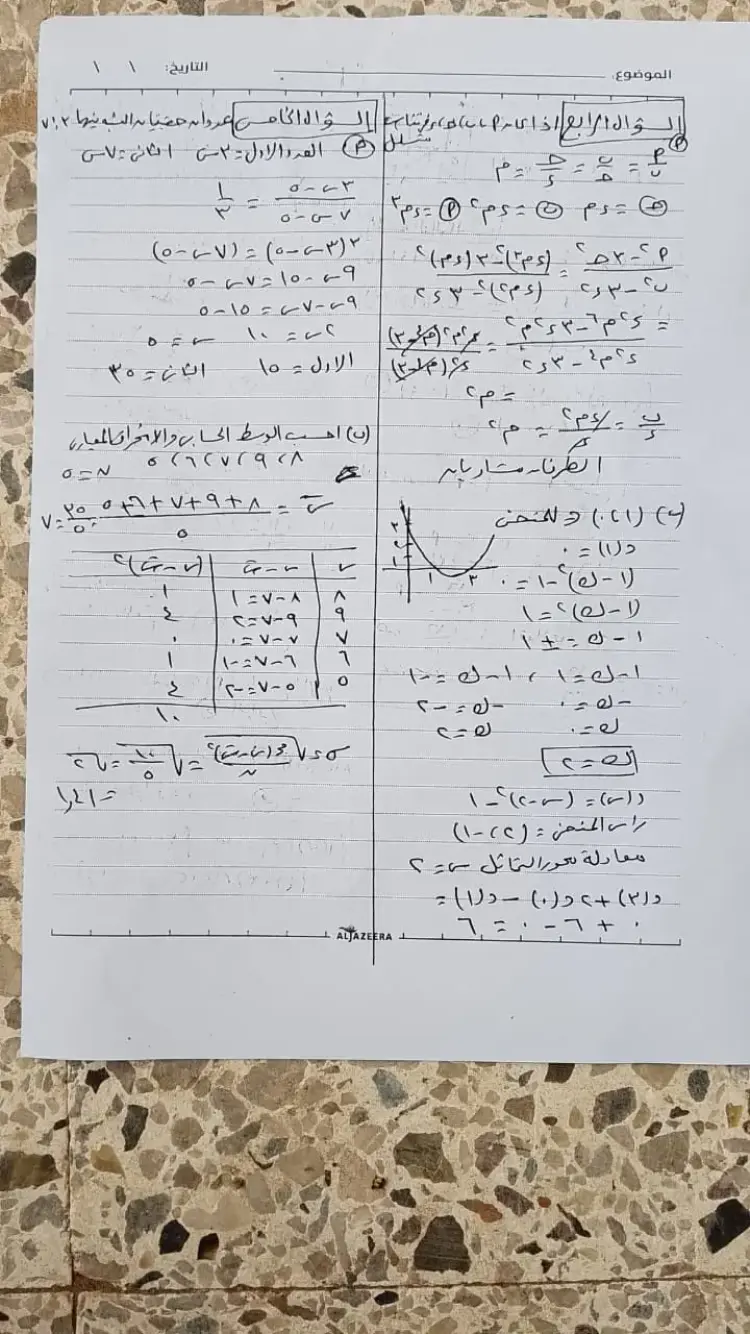 الموضوع: التاريخ: / /
السؤال الرابع اذا كانت P، ب، ح، د في تناسب
متسلسل
P/ب = ب/ح = ح/د = م
ح = د م ب = د م² P = د م³
(P² - ٣ح²)/(ب² - ٣د²) = ((د م³)² - ٣(د م)²)/((د م²)² - ٣د²)
= (د²م٦ - ٣د²م²)/(د²م٤ - ٣د²) = د²م²(م٤ - ٣)/د²(م٤ - ٣)
= م²
ب/د = د م²/د = م²
الطرفان متساويان
(ب) (١، ٠) ∈ للمنحنى
٣
٢
١
١ ٣
د(١) = ٠
(١ - ك)² - ١ = ٠
(١ - ك)² = ١
١ - ك = ± ١
١ - ك = ١ ، ١ - ك = -١
-ك = ٠ -ك = -٢
ك = ٠ ك = ٢
ك = ٢
د(س) = (س - ٢)² - ١
راس المنحنى = (٢، -١)
معادلة محور التماثل س = ٢
د(٣) + ٢د(٠) - د(١) =
٠ + ٦ - ٠ = ٦
السؤال الخامس عددان حقيقيان النسبة بينهما ٣:٧
P العدد الاول = ٣س الثاني = ٧س
(٣س - ٥)/(٧س - ٥) = ١/٣
٣(٣س - ٥) = (٧س - ٥)
٩س - ١٥ = ٧س - ٥
٩س - ٧س = ١٥ - ٥
٢س = ١٠ س = ٥
الاول = ١٥ الثاني = ٣٥
(ب) احسب الوسط الحسابي والانحراف المعياري
٨، ٩، ٧، ٦، ٥ ن = ٥
س̄ = (٨ + ٩ + ٧ + ٦ + ٥)/٥ = ٣٥/٥ = ٧
س | س - س̄ | (س - س̄)²
٨ | ٨ - ٧ = ١ | ١
٩ | ٩ - ٧ = ٢ | ٤
٧ | ٧ - ٧ = ٠ | ٠
٦ | ٦ - ٧ = -١ | ١
٥ | ٥ - ٧ = -٢ | ٤
١٠
σ = √(مج(س - س̄)²/ن) = √(١٠/٥) = √٢
= ١,٤١
ALJAZEERA